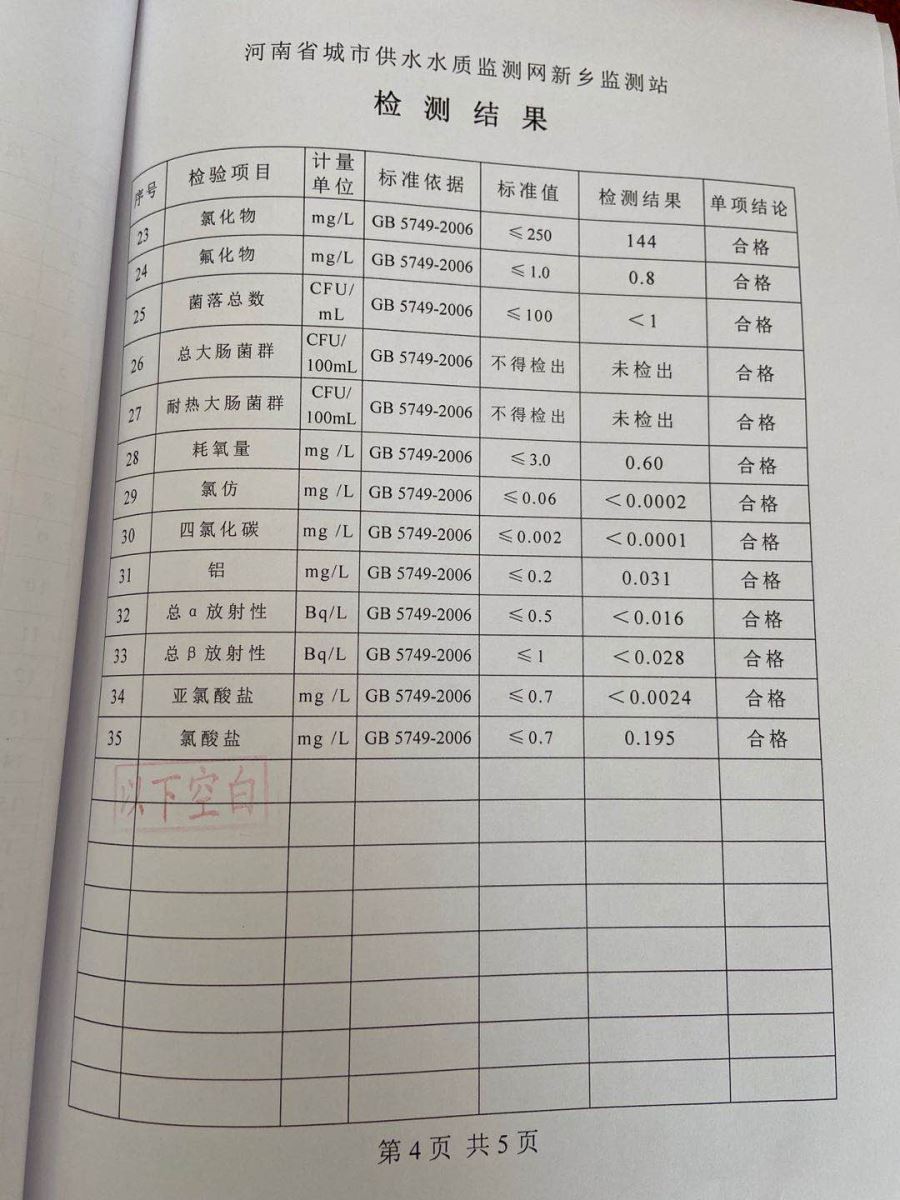 河南省城市供水水质监测网新乡监测站
检测结果
序号 检验项目 计量单位 标准依据 标准值 检测结果 单项结论
23 氯化物 mg/L GB 5749-2006 ≤250 144 合格
24 氟化物 mg/L GB 5749-2006 ≤1.0 0.8 合格
25 菌落总数 CFU/mL GB 5749-2006 ≤100 <1 合格
26 总大肠菌群 CFU/100mL GB 5749-2006 不得检出 未检出 合格
27 耐热大肠菌群 CFU/100mL GB 5749-2006 不得检出 未检出 合格
28 耗氧量 mg /L GB 5749-2006 ≤3.0 0.60 合格
29 氯仿 mg /L GB 5749-2006 ≤0.06 <0.0002 合格
30 四氯化碳 mg /L GB 5749-2006 ≤0.002 <0.0001 合格
31 铝 mg/L GB 5749-2006 ≤0.2 0.031 合格
32 总α放射性 Bq/L GB 5749-2006 ≤0.5 <0.016 合格
33 总β放射性 Bq/L GB 5749-2006 ≤1 <0.028 合格
34 亚氯酸盐 mg /L GB 5749-2006 ≤0.7 <0.0024 合格
35 氯酸盐 mg /L GB 5749-2006 ≤0.7 0.195 合格
以下空白
第4页 共5页